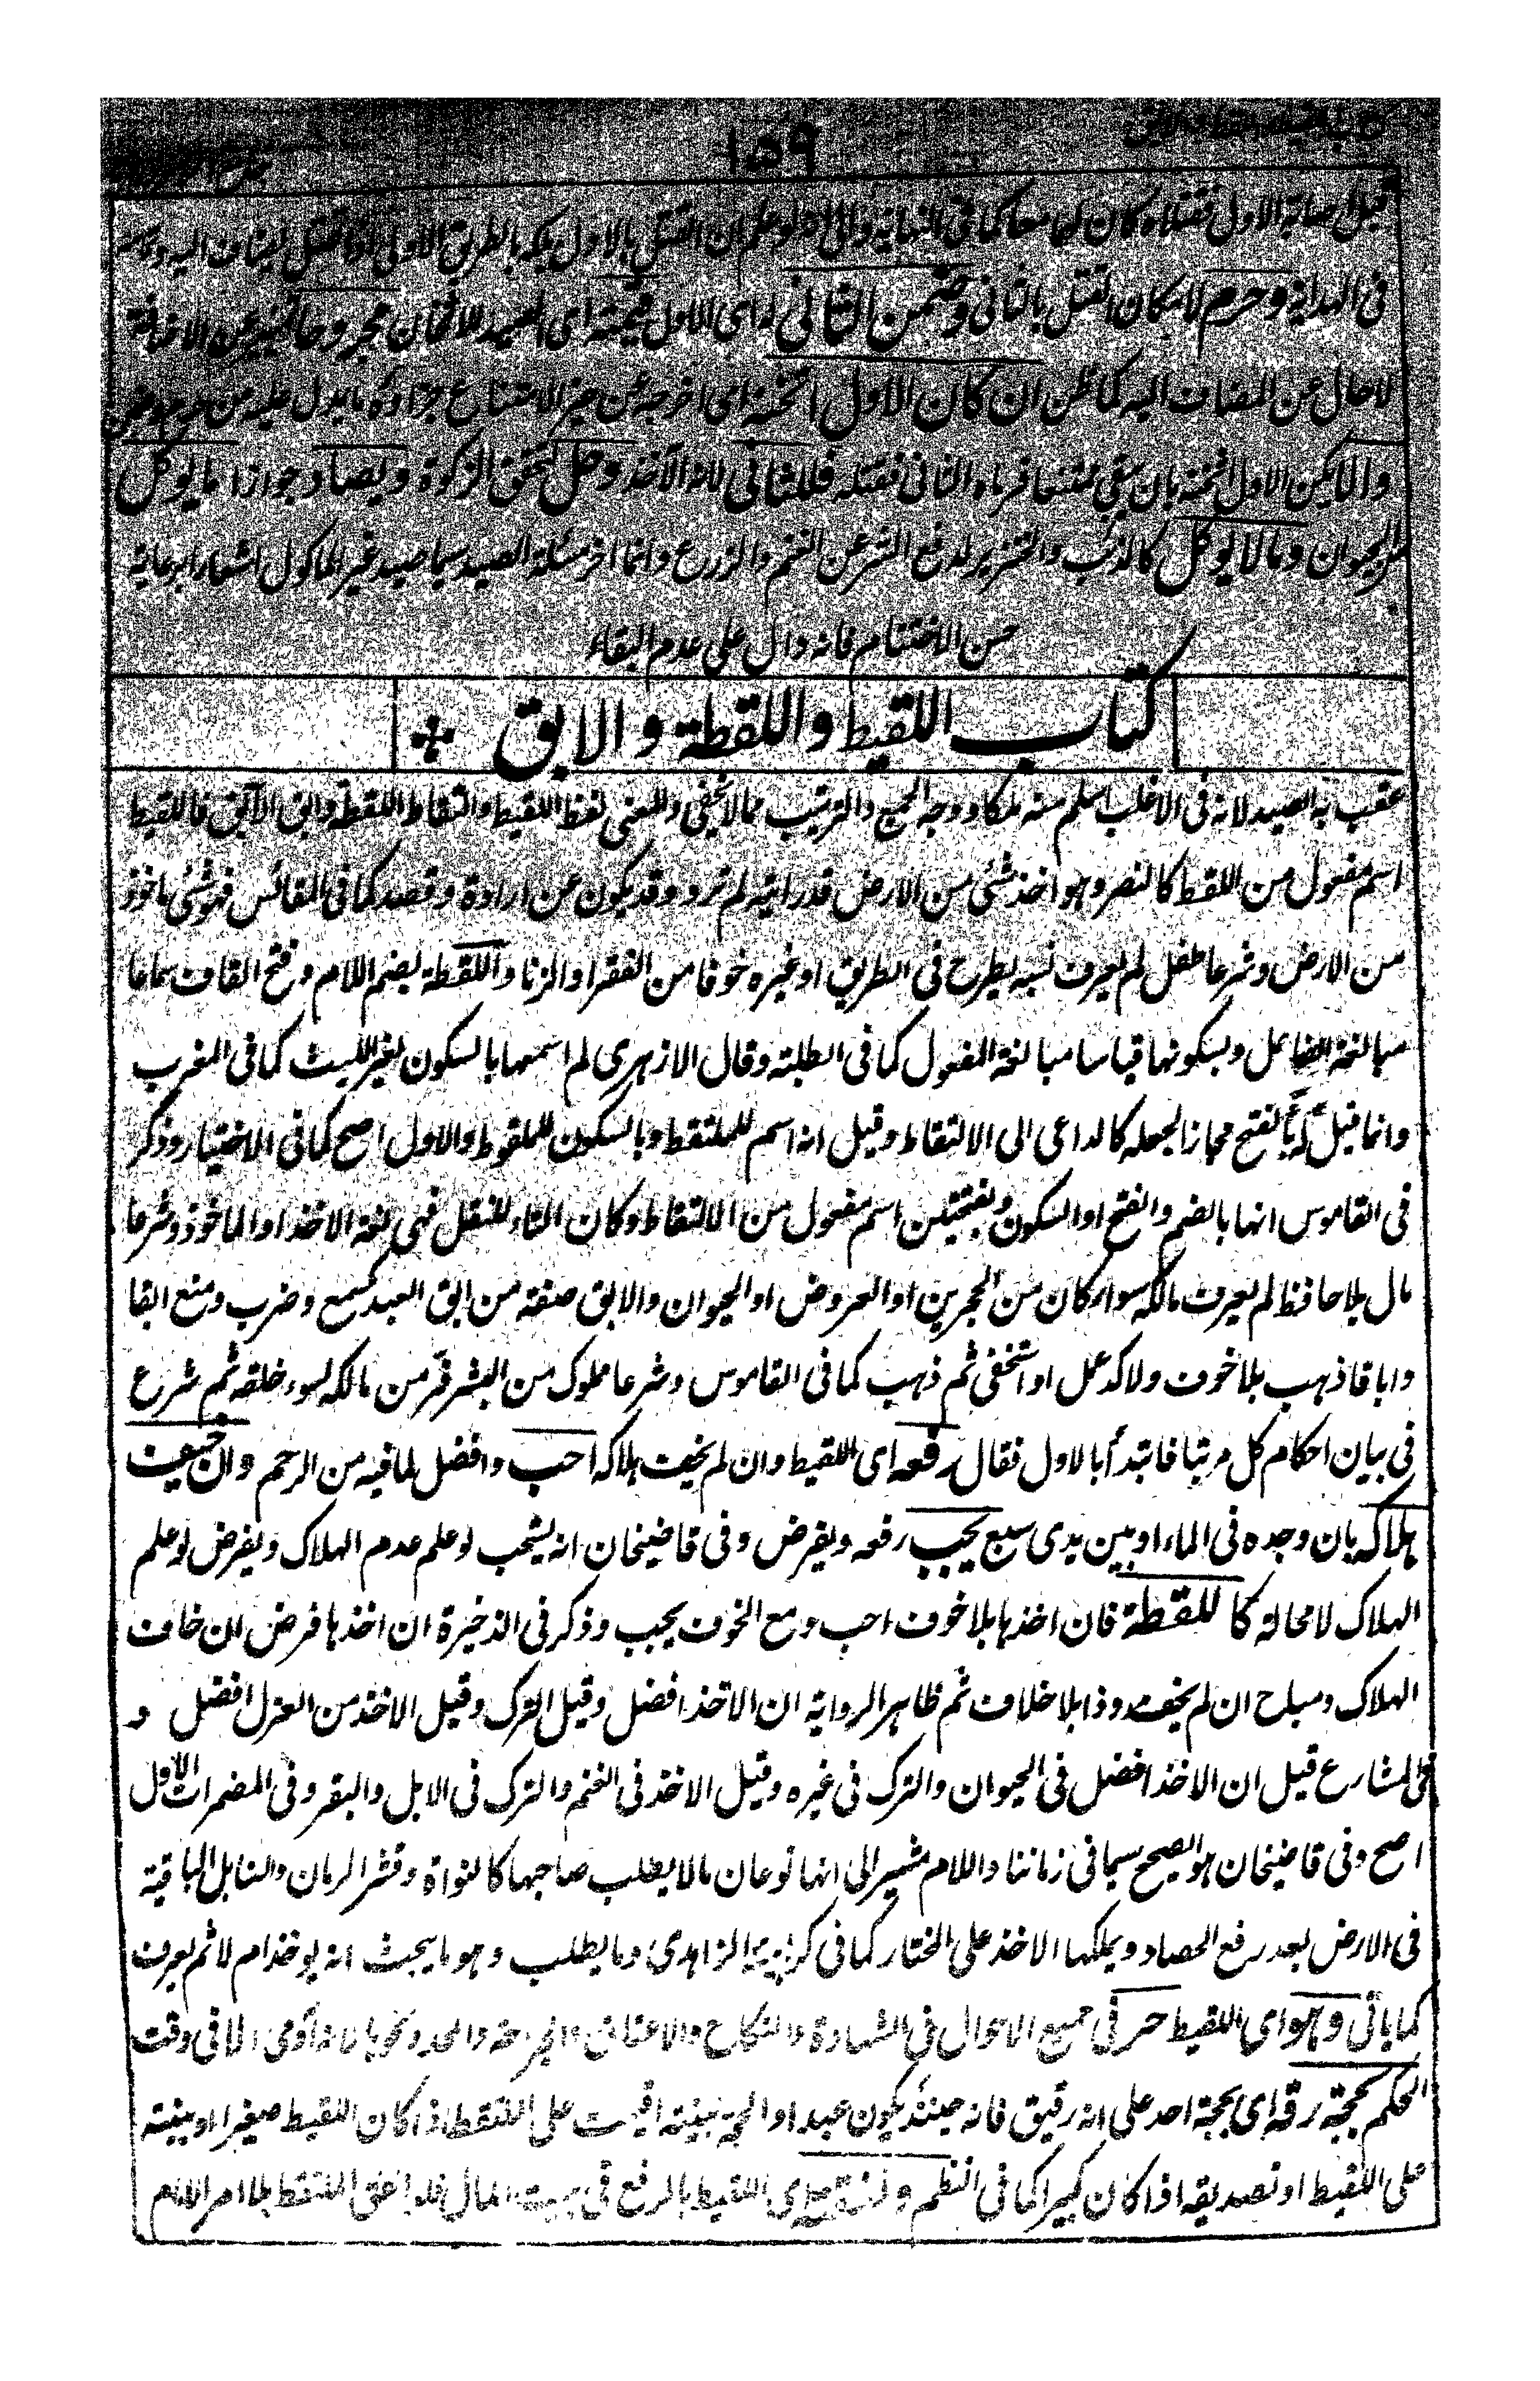 ١٥٩
قبل اصابة الاول فقتلاه كان لهما معا كما فى النهاية لو علم ان القتل بالاول بالطريق الاولى اليه وتمامه
فى الهداية وحرم لامكان القتل بالثانى وضمن الثانى له اى الاول قيمته اى الصيد مجروحا
لا حال عن المضاف اليه كما ظن ان كان الاول اثخنه اى اخرجه عن حيز الامتناع
والا يكن الاول اثخنه بان بقى ممتنعا فرماه الثانى فقتله فللثانى لانه الآخذ وحل لتحقق الزكوة ويصاد جوازا ما يوكل
من الحيوان وما لا يوكل كالذئب والخنزير لدفع الشر عن الغنم والزرع وانما اخر مسئلة الصيد سيما صيد غير الماكول اشعارا برعاية
حسن الاختتام فانه دال على عدم البقاء
كتاب اللقيط واللقطة والابق
عقب به الصيد لانه فى الاغلب اسلم منه ملكا ووجه الجمع والترتيب مما لا يخفى والمعنى لفظ اللقيط والتقاط اللقطة وابق الآبق فاللقيط
اسم مفعول من اللقط كالنصر وهو اخذ شئ من الارض قد رايته لم ترد وقد يكون عن ارادة وقصد كما فى المقائس فهو شئ ماخوذ
من الارض وشرعا طفل لم يعرف نسبه يطرح فى الطريق او غيره خوفا من الفقر او الزنا واللقطة بضم اللام وفتح القاف سماعا
مبالغة الفاعل وبسكونها قياسا مبالغة المفعول كما فى الطلبة وقال الازهرى لم اسمعها بالسكون لغير الليث كما فى المغرب
وانما قيل بالفتح مجازا لجعله كالداعى الى الالتقاط وقيل انه اسم للملتقط وبالسكون للملقوط والاول اصح كما فى الاختيار وذكر
فى القاموس انها بالضم والفتح او السكون وبفتحتين اسم مفعول من الالتقاط وكان التاء للنقل فهى لغة الاخذ او الماخوذ وشرعا
مال بلا حافظ لم يعرف مالكه سواء كان من الحجرين او العروض او الحيوان والابق صفة من ابق العبد كسمع وضرب ومنع ابقا
واباقا ذهب بلا خوف ولا كد عمل او استخفى ثم ذهب كما فى القاموس وشرعا مملوك من البشر فر من مالكه لسوء خلقه ثم شرع
فى بيان احكام كل مرتبا فابتدأ بالاول فقال رفعه اى اللقيط وان لم يخف هلاكه احب وافضل لما فيه من الرحم وان خيف
هلاكه بان وجده فى الماء او بين يدى سبع يجب رفعه ويفرض وفى قاضيخان انه يستحب لو علم عدم الهلاك ويفرض لو علم
الهلاك لا محالة كاللقطة فان اخذها بلا خوف احب ومع الخوف يجب وذكر فى الذخيرة ان اخذها فرض ان خاف
الهلاك ومباح ان لم يخف وذا بلا خلاف ثم ظاهر الرواية ان الاخذ افضل وقيل الترك وقيل الاخذ من العزل افضل و
فى المشارع قيل ان الاخذ افضل فى الحيوان والترك فى غيره وقيل الاخذ فى الغنم والترك فى الابل والبقر وفى المضمرات الاول
اصح وفى قاضيخان هو الصحيح سيما فى زماننا واللام مشير الى انها نوعان ما لا يطلب صاحبها كالنواة وقشر الرمان والسنابل الباقية
فى الارض بعد رفع الحصاد ويملكها الاخذ على المختار كما فى الزاهدى وما يطلب وهو ما يبحث انه يوخذ ام لا ثم يعرف
كما يأتى وهو اى اللقيط حر فى جميع الاحوال فى الشهادة والنكاح والاعتاق والحد ونحوها لانه آدمى الا فى وقت
الحكم بحجة رقه اى بحجة احد على انه رقيق فانه حينئذ يكون عبدا والحجة بينة اقيمت على الملتقط اذا كان اللقيط صغيرا او بينة
على اللقيط او تصديقه اذا كان كبيرا كما فى النظم ونفقته اى اللقيط بالرفع فى بيت المال فلو انفق الملتقط بلا امر الامام